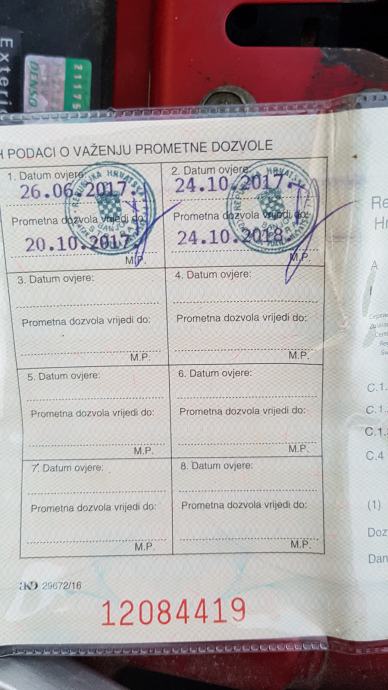 Exteri
DENSO
21175
H PODACI O VAŽENJU PROMETNE DOZVOLE
1. Datum ovjere:
26.06.2017.
Prometna dozvola vrijedi do:
20.10.2017.
M.P.
2. Datum ovjere:
24.10.2017.
Prometna dozvola vrijedi do:
24.10.2018.
M.P.
REPUBLIKA HRVATSKA
3. Datum ovjere:
Prometna dozvola vrijedi do:
M.P.
4. Datum ovjere:
Prometna dozvola vrijedi do:
M.P.
5. Datum ovjere:
Prometna dozvola vrijedi do:
M.P.
6. Datum ovjere:
Prometna dozvola vrijedi do:
M.P.
7. Datum ovjere:
Prometna dozvola vrijedi do:
M.P.
8. Datum ovjere:
Prometna dozvola vrijedi do:
M.P.
AKD 29672/16
12084419
Re
H
A
C.1.
C.1.
C.1.
C.4
(1)
Doz
Dan